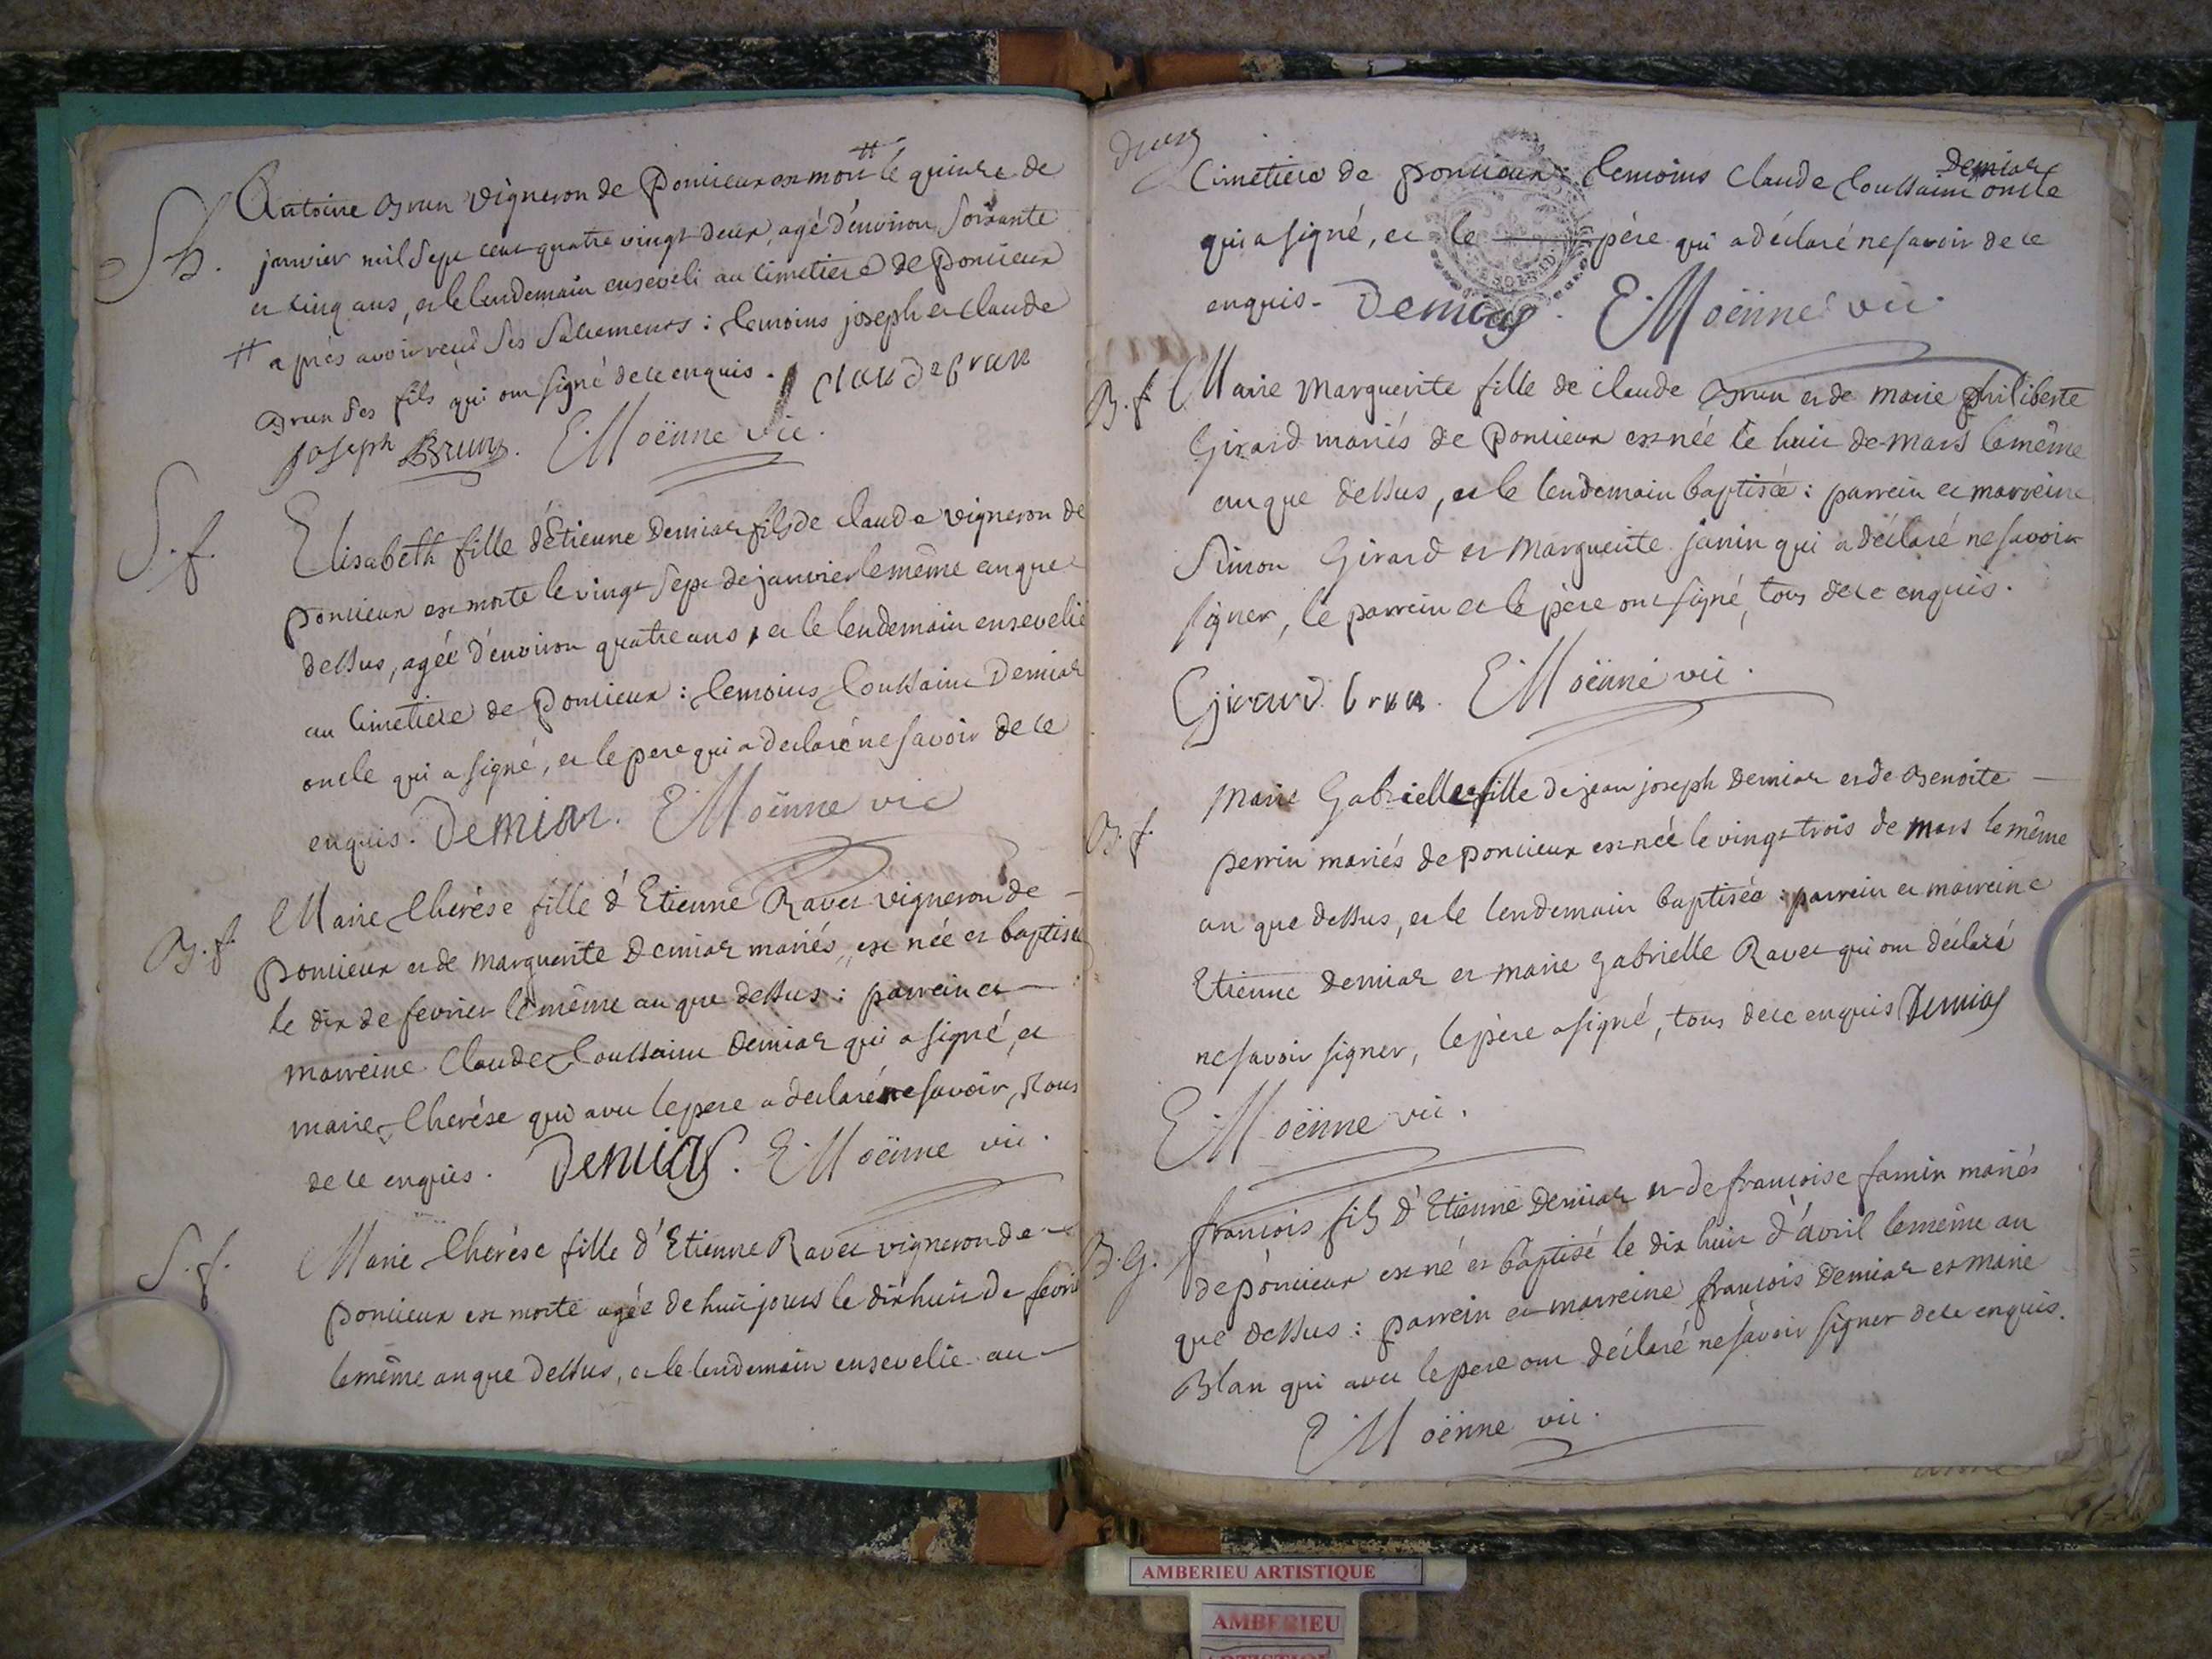 Sh.
Antoine Brun vigneron de Poncieux est mort # le quinze de
janvier mil sept cent quatre vingt deux, agé d'environ soixante
et cinq ans, et le lendemain enseveli au cimetiere de Poncieux
# après avoir reçu ses sacrements : temoins joseph et claude
Brun ses fils qui ont signé de ce enquis. claude brun
joseph Brun. E. Moënne vic.
S.f.
Elisabeth fille d'Etienne Demiar fils de claude vigneron de
Poncieux est morte le vingt sept de janvier le même an que
dessus, agée d'environ quatre ans, et le lendemain ensevelie
au cimetiere de Poncieux : temoins Toussaint Demiar
oncle qui a signé, et le pere qui a declaré ne savoir de ce
enquis. Demiar. E. Moënne vic
B.f.
Marie Therése fille d'Etienne Ravet vigneron de
poncieux et de marguerite Demiar mariés, est née et baptisée
le dix de fevrier le même an que dessus : parrein et
marreine Claude Toussaint Demiar qui a signé, et
marie Therése qui avec le pere a declaré ne savoir, tous
de ce enquis. Demiar. E. Moënne vic.
S.f.
Marie Therése fille d'Etienne Ravet vigneron de
poncieux est morte agée de huit jours le dix huit de fevrie
le même an que dessus, et le lendemain ensevelie au
deux
Cimetiere de poncieux : temoins Claude Toussaint Demiar oncle
qui a signé, et le père qui a déclaré ne savoir de ce
enquis. Demiar. E. Moënne vic.
B.f.
Marie Marguerite fille de claude Brun et de marie philiberte
Girard mariés de Poncieux est née le huit de mars le même
an que dessus, et le lendemain baptisée : parrein et marreine
Simon Girard et Marguerite janin qui a déclaré ne savoir
signer, le parrein et le père ont signé, tous de ce enquis.
Girard. brun. E. Moënne vic.
B.f.
Marie Gabrielle fille de jean joseph Demiar et de Benoite
perrin mariés de poncieux est née le vingt trois de mars le même
an que dessus, et le lendemain baptisée : parrein et marreine
Etienne Demiar et marie gabrielle Ravet qui ont déclaré
ne savoir signer, le père a signé, tous de ce enquis Demiar
E. Moënne vic.
B.G.
françois fils d'Etienne Demiar et de françoise famin mariés
de poncieux est né et baptisé le dix huit d'avril le même an
que dessus : parrein et marreine françois Demiar et marie
Blan qui avec le pere ont déclaré ne savoir signer de ce enquis.
E. Moënne vic.
AMBERIEU ARTISTIQUE
AMBERIEU
ARTISTIQUE